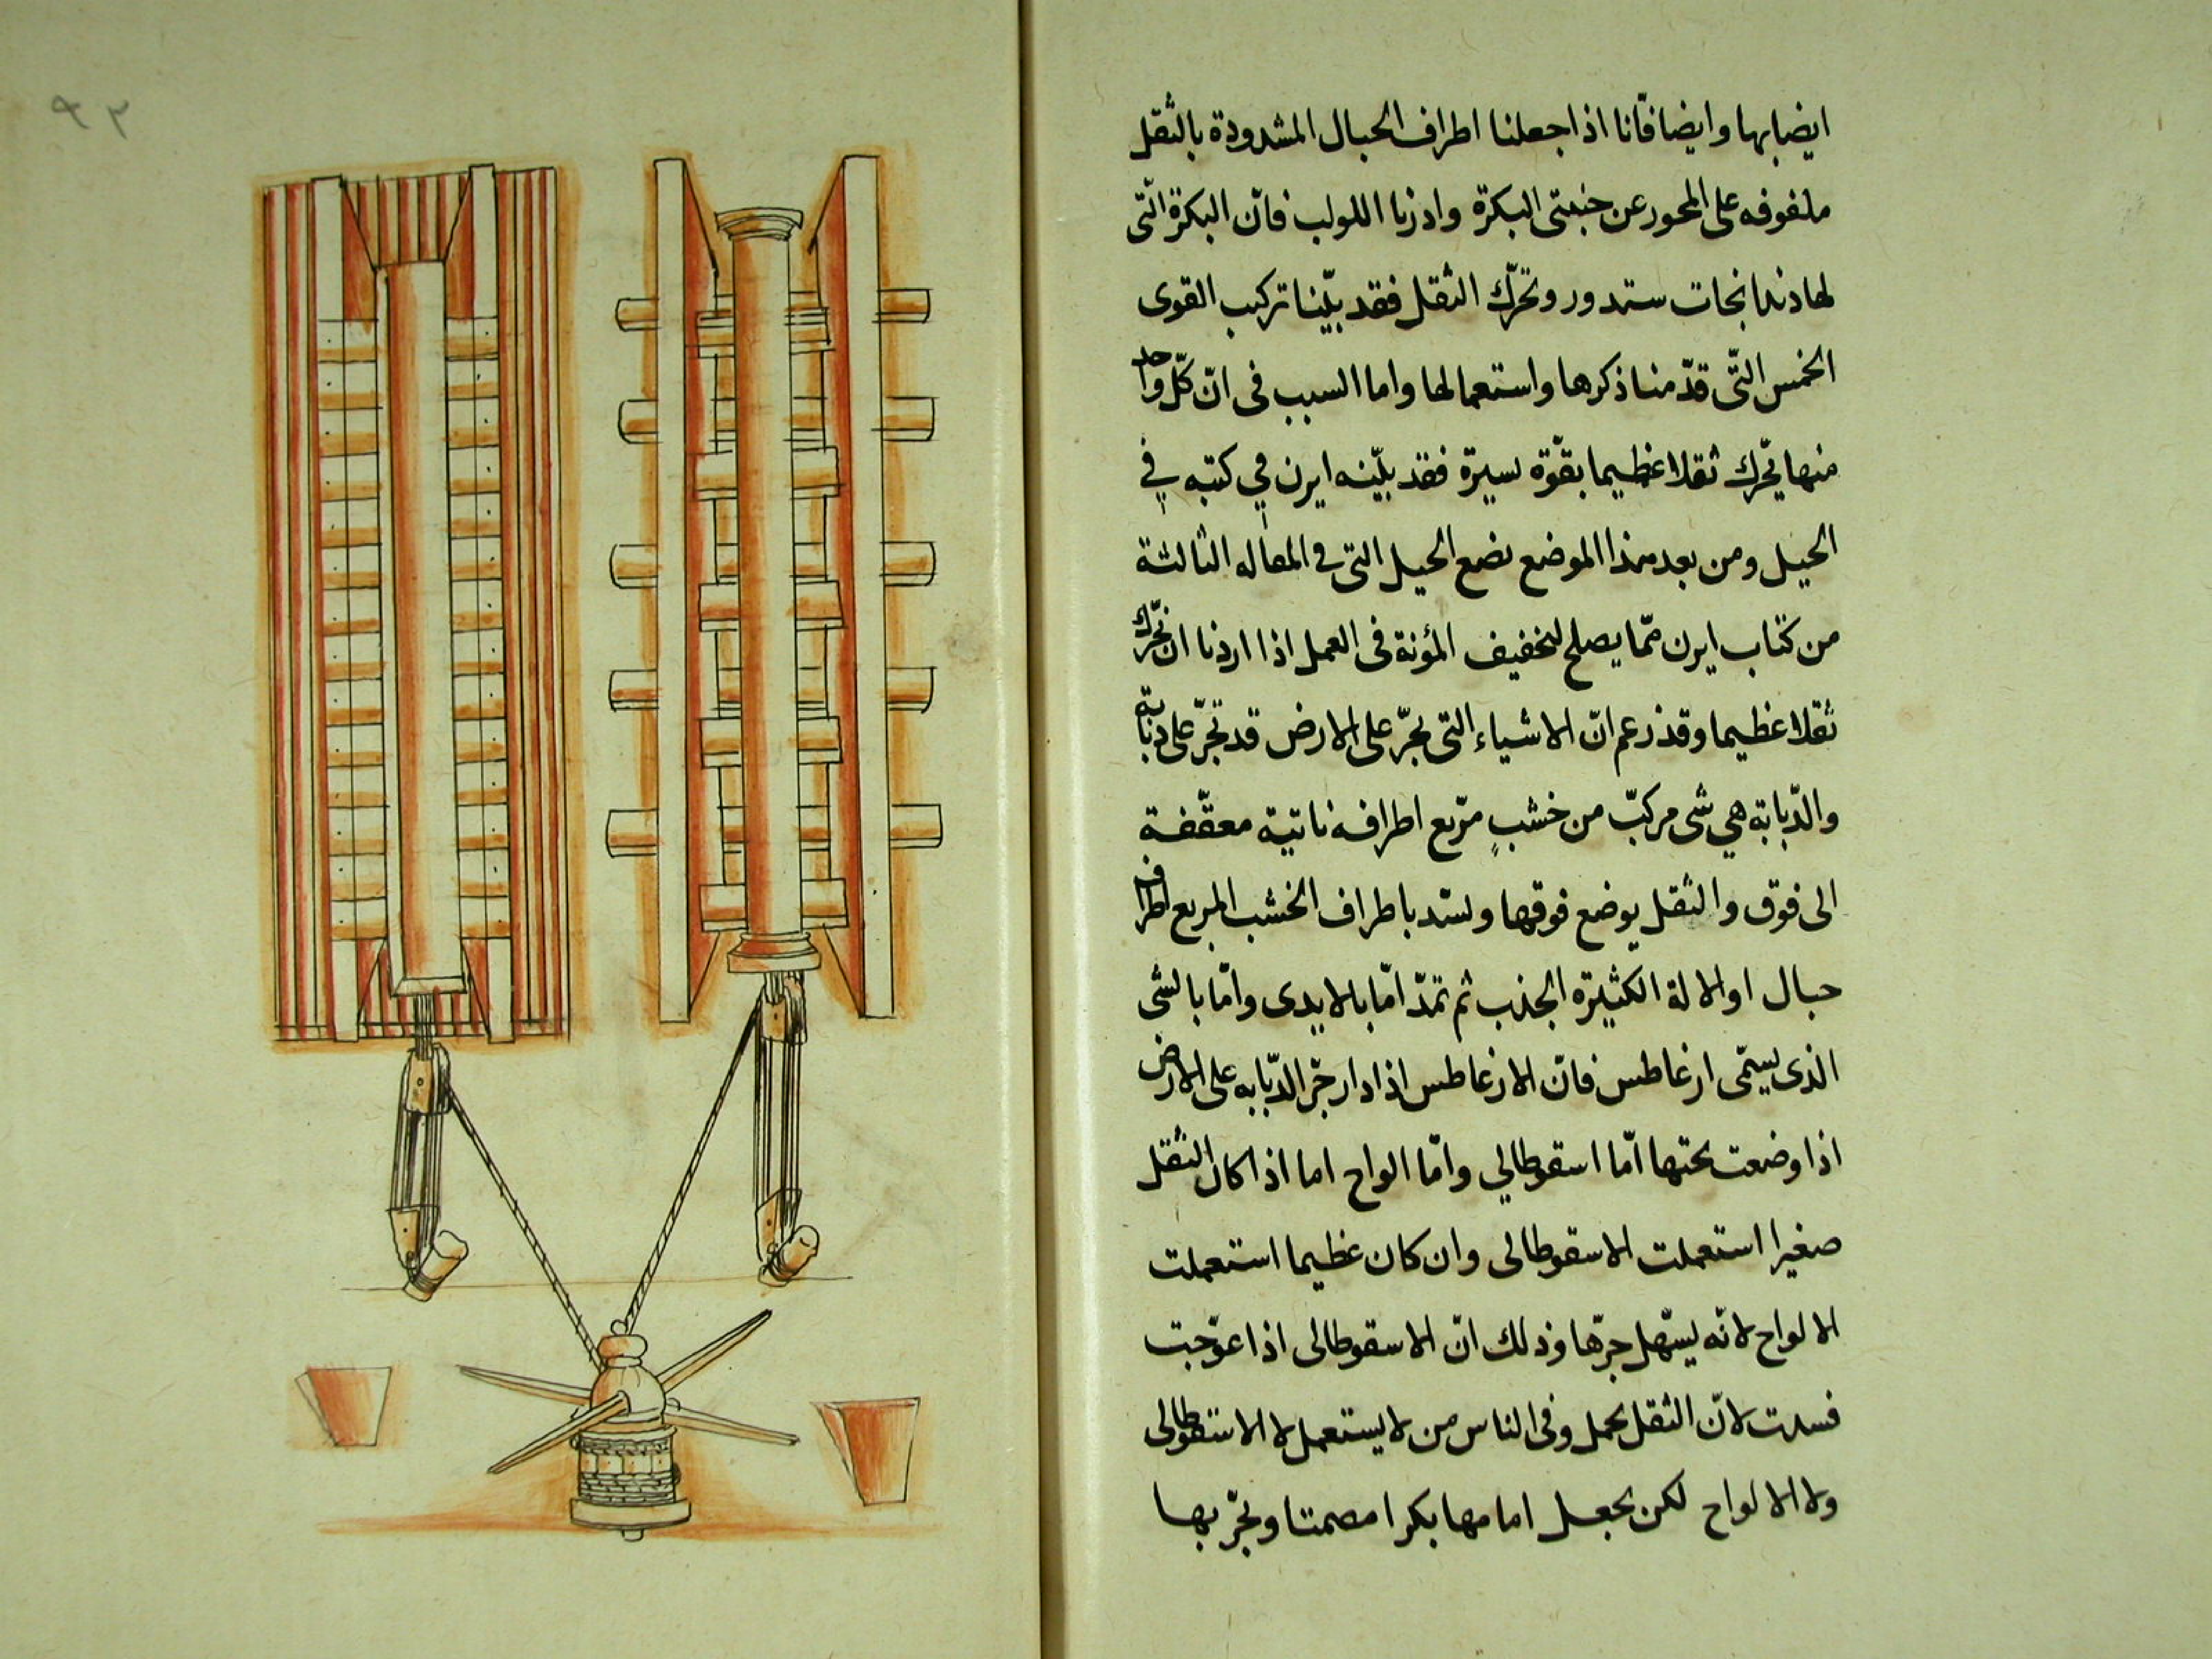 ايضا بها وايضا فانّا اذا جعلنا اطراف الحبال المشدودة بالثقل
ملفوفه على المحور عن جنبتى البكرة وادرنا اللولب فانّ البكرة الّتى
لها دندانجات ستدور وتحرّك الثقل فقد بيّنا تركيب القوى
الخمس الّتى قدّمنا ذكرها واستعمالها واما السبب فى انّ كلّ واحد
منها يحرّك ثقلا عظيما بقوّة يسيرة فقد بيّنه ايرن في كتبه في
الحيل ومن بعد هذا الموضع نضع الحيل التى فى المقاله الثالثة
من كتاب ايرن ممّا يصلح لتخفيف المؤنة فى العمل اذا اردنا ان نحرّك
ثقلا عظيما وقد زعم انّ الاشياء التى تجرّ على الارض قد تجرّ على دبّابة
والدّبّابة هي شى مركّب من خشبٍ مربّع اطرافه ناتية معقّفة
الى فوق والثقل يوضع فوقها وتشد باطراف الخشب المربع اطراف
حبال او الالة الكثيرة الجذب ثم تمدّ امّا بالايدى وامّا بالشى
الذى يسمّى ارغاطس فانّ الارغاطس اذا دار جرّ الدّبّابه على الارض
اذا وضعت تحتها امّا اسقوطالي وامّا الواح اما اذا كان الثقل
صغيرا استعملت الاسقوطالى وان كان عظيما استعملت
الالواح لانّه يسهّل جرّها وذلك انّ الاسقوطالى اذا عوّجبت
فسدت لانّ الثقل يحمل وفى الناس من لا يستعمل لا الاسقوطالى
ولا الالواح لكن يجعل امامها بكرا مصمتا وتجرّ بها
٩٢